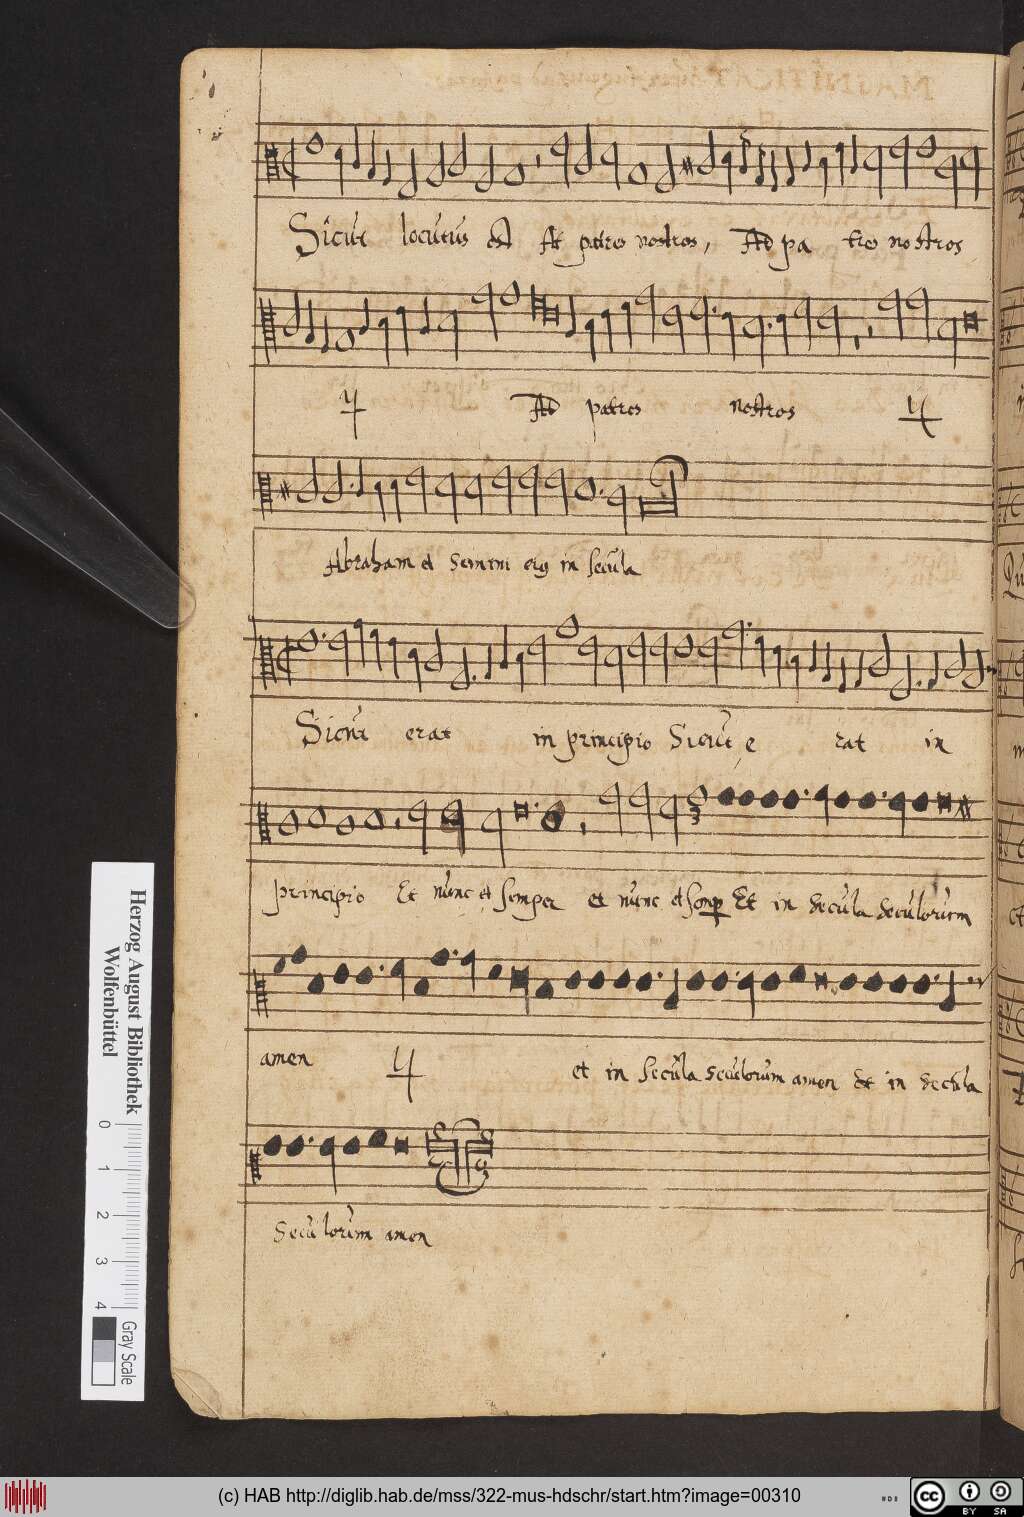 Sicut locutus est Ad patres nostros, Ad pa tres nostros
Ad patres nostros
Abraham et semini eiꝰ in secula
Sicut erat in principio Sicut e rat in
principio Et nunc et semper et nunc et semp Et in secula seculorum
amen et in secula seculorum amen Et in secula
Seculorum amen
Herzog August Bibliothek
Wolfenbüttel
0 1 2 3 4
Gray Scale
(c) HAB http://diglib.hab.de/mss/322-mus-hdschr/start.htm?image=00310
cc BY SA